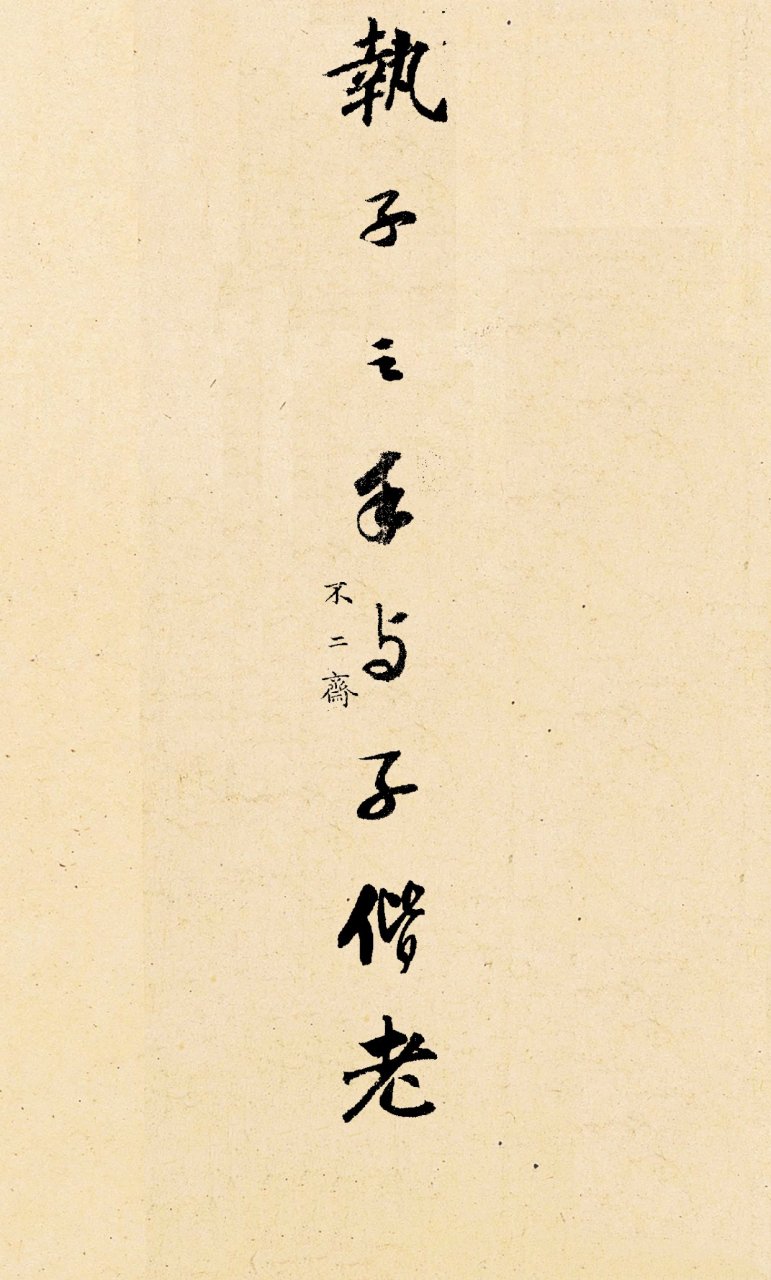 執子之手与子偕老
不二齋